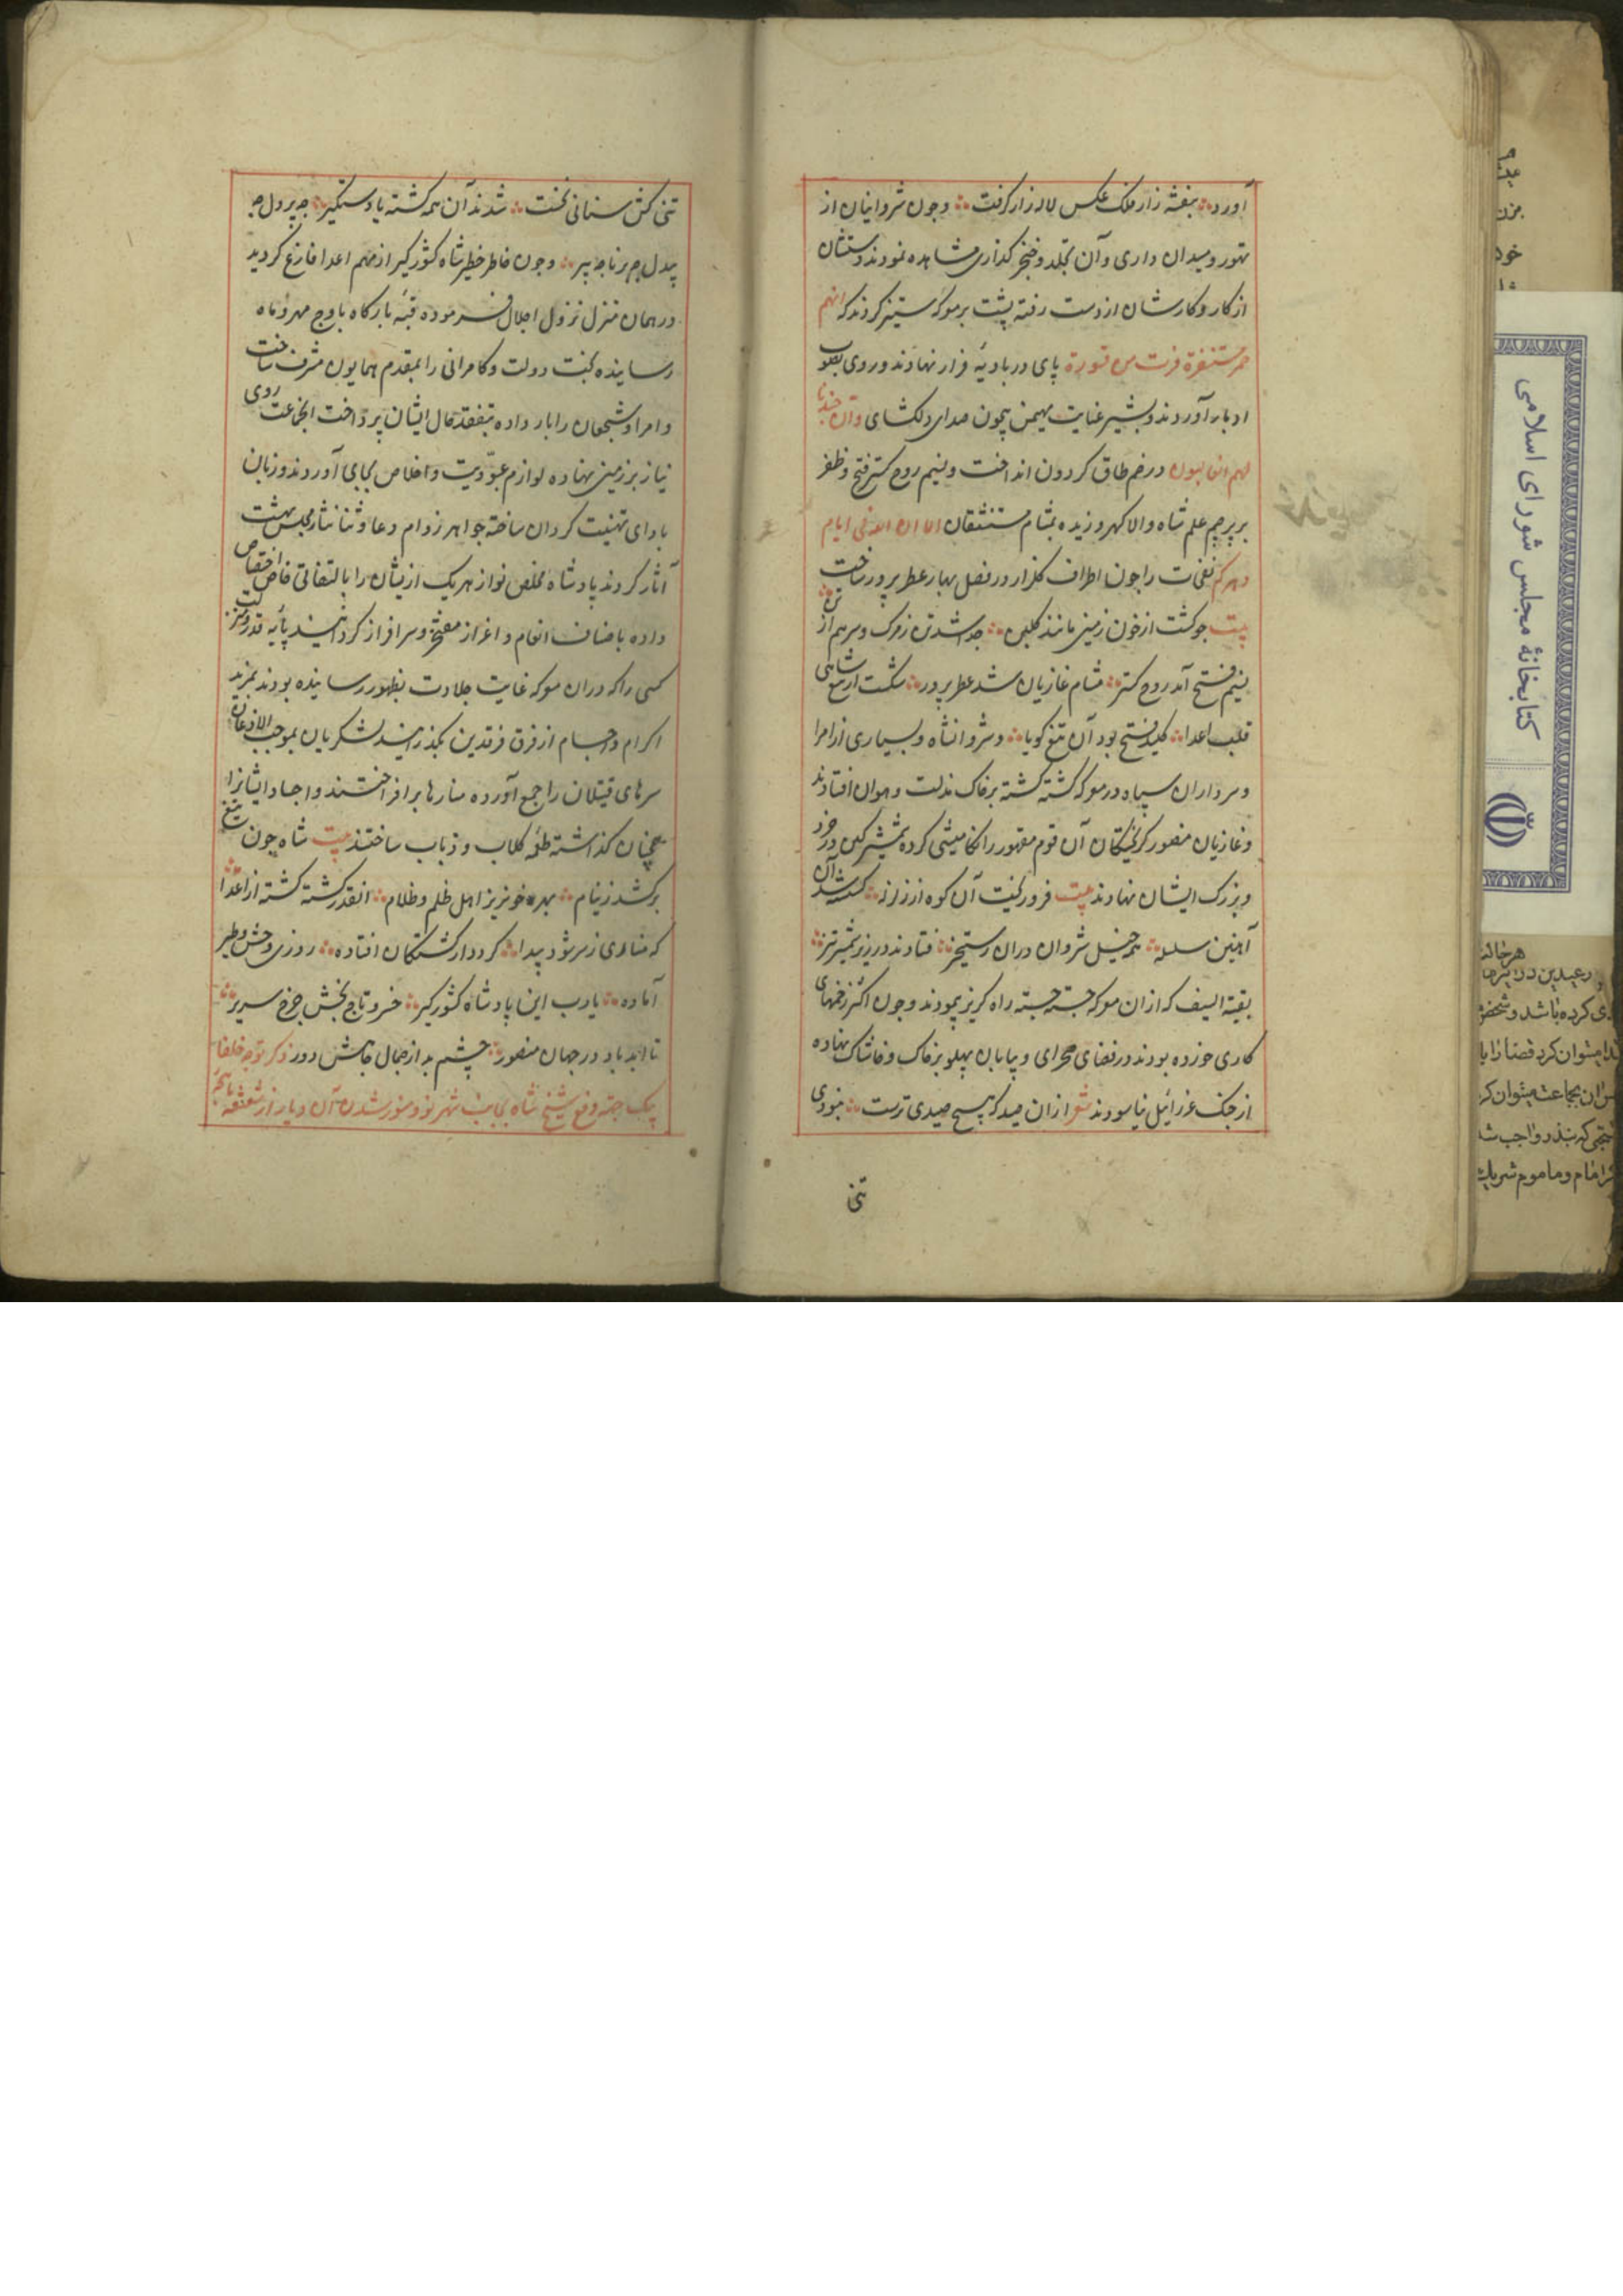 آورد بنفشه زار فلک عکس لاله زار گرفت وچون شروانیان از
تهور ومیدان داری وآن تجلد وخنجر گذاری مشاهده نمودند ودستشان
از کار وکارشان از دست رفته پشت بر معرکه ستیز کردند که انهم
حمر مستنفرة فرت من قسورة پای در بادیه فرار نهادند وروی بصوب
ادبار آوردند وبشیر عنایت مهیمن بیچون صدای دلکشای وان جندنا
لهم الغالبون در خم طاق گردون انداخت ونسیم روح گستر فتح وظفر
بر پرچم علم شاه والا گهر وزیده بمشام مستنشقان الا ان لله فی ایام
دهرکم نفحات را چون اطراف گلزار در فصل بهار عطر پرور ساخت
بیت چو گشت از خون زمین مانند گلبن جدا شد تن ز ترک وسر هم از تن
نسیم فتح آمد روح گستر مشام غازیان شد عطر پرور شکست از تیغ شاهی
قلب اعدا کلید فتح بود آن تیغ گویا وشروانشاه وبسیاری از امرا
وسرداران سپاه در معرکه کشته گشته بر خاک مذلت وهوان افتادند
وغازیان منصور گریختگان آن قوم مقهور را تکامیشی کرده شمشیر کین در خرد
وبزرگ ایشان نهادند بیت فرو ریخت آن کوه از زلزله گسسته شد آن
آهنین سلسله همه خیل شروان دران رستخیز فتادند در زیر شمشیر تیز
بقیة السیف که ازان معرکه جسته جسته راه گریز پیمودند وچون اکثر زخمهای
کاری خورده بودند در فضای صحرای وبیابان پهلو بر خاک وخاشاک نهاده
از چنگ عزرائیل نیاسودند شعر ازان صید که هیچ صیدی نرست نبودی
تنی
تنی کش سنانی نخست شدند آن همه کشته یا دستگیر چه پر دل چه
بیدل چه برنا چه پیر وچون خاطر خطیر شاه کشورگیر از مهم اعدا فارغ گردید
در همان منزل نزول اجلال فرموده قبه بارگاه باوج مهر وماه
رسانیده تخت دولت وکامرانی را بمقدم همایون مشرف ساخت
وامرا وشجعان را بار داده بتفقد حال ایشان پرداخت انجماعت روی
نیاز بر زمین نهاده لوازم عبودیت واخلاص بجای آوردند وزبان
بادای تهنیت گردان ساخته جواهر زواهر دعا وثنا نثار مجلس بهشت
آثار کردند پادشاه مخلص نواز هریک ازیشان را بالتفاتی خاص اختصاص
داده باصناف انعام واعزاز مفتخر وسرافراز گردانیدند پایه قدر ومنزلت
کسی را که دران معرکه غایت جلادت بظهور رسانیده بودند بمزید
اکرام واحسام از فرق فرقدین بگذرانید لشکریان بموجب الاذعان
سرهای قتیلان را جمع آورده منارها برافراختند واجساد ایشانرا
همچنان گذاشته طعمه کلاب وذباب ساختند بیت شاه چون تیغ
برکشد ز نیام بهر خونریز اهل ظلم وظلام انقدر کشته گشته از اعدا
که مناری ز سر شود پیدا گردد از کشتگان افتاده روزی وحش وطیر
آماده یارب این پادشاه کشورگیر خسرو تاج بخش چرخ سریر
تا ابد باد در جهان منصور چشم بد از جمال جاهش دور ذکر توجه خلفا
بیک جهة دفع شیخ شاه بجانب شهر نو ومنور شدن آن دیار از شعشعه ماهچه
کتابخانهٔ مجلس شورای اسلامی